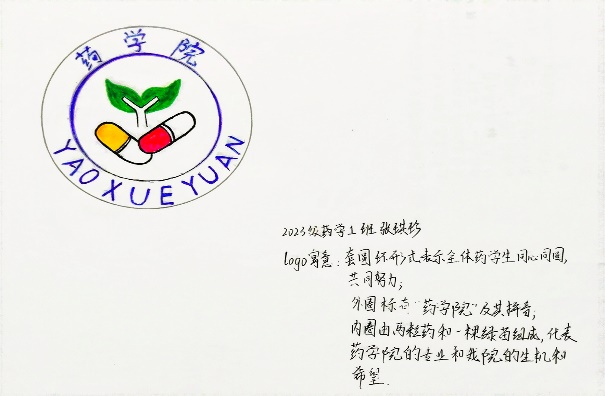 药学院
YAO XUE YUAN
2023级药学1班 张珠珍
logo寓意：套圆环形式表示全体药学生同心同圆，
共同努力；
外圈标有“药学院”及其拼音；
内圈由两粒药和一棵绿苗组成，代表
药学院的专业和我院的生机和
希望．